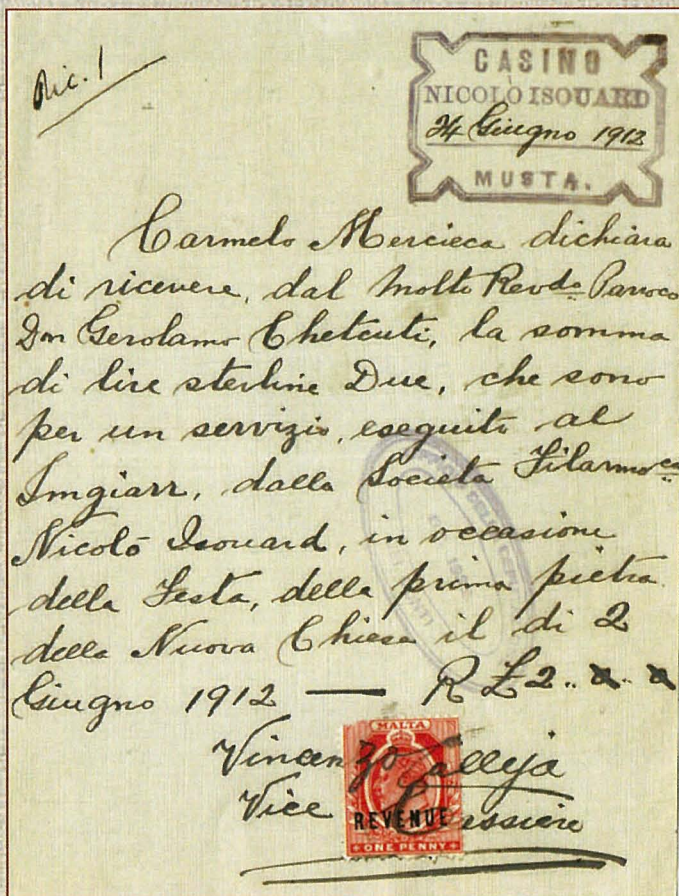 Ric. 1
CASINO
NICOLÒ ISOUARD
24 Giugno 1912
MUSTA.
Carmelo Mercieca dichiara
di ricevere, dal Molto Revdo Parroco
Don Gerolamo Chetcuti, la somma
di lire sterline Due, che sono
per un servizio, eseguito al
Imgiarr, dalla Società Filarmoca
Nicolò Isouard, in occasione
della Festa, della prima pietra
della Nuova Chiesa il di 2
Giugno 1912 — R £2..x..x
Vincenzo Calleja
Vice Cassiere
MALTA
REVENUE
ONE PENNY